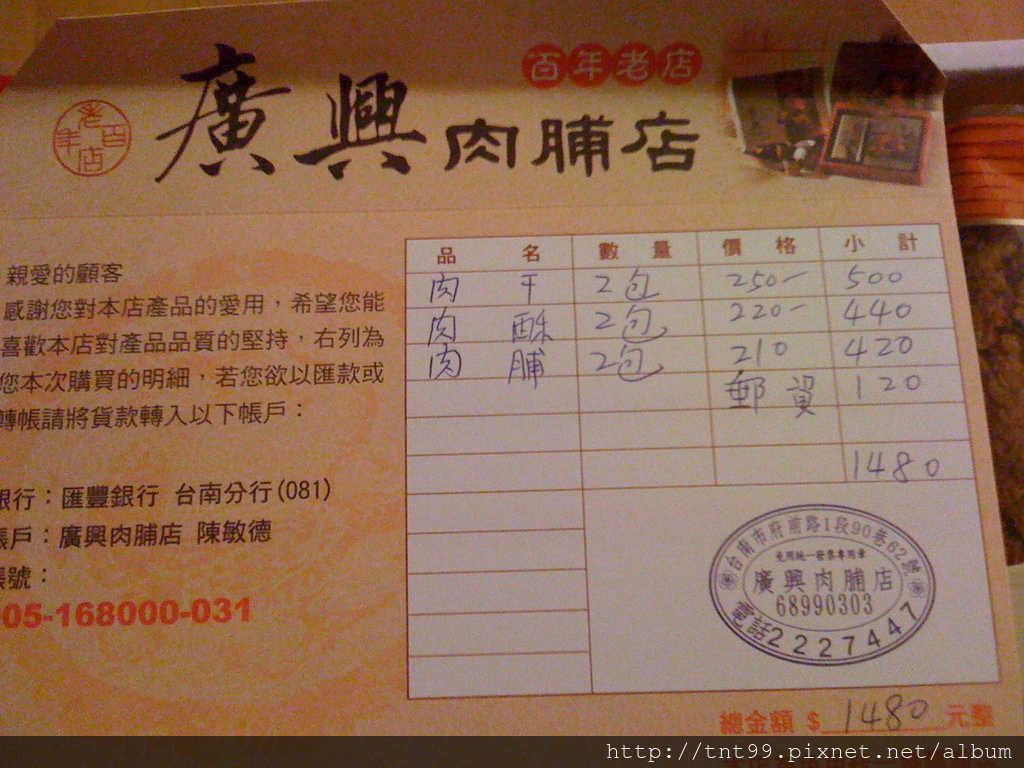 百年老店
百年老店
廣興肉脯店
親愛的顧客
感謝您對本店產品的愛用，希望您能
喜歡本店對產品品質的堅持，右列為
您本次購買的明細，若您欲以匯款或
轉帳請將貨款轉入以下帳戶：
銀行：匯豐銀行 台南分行(081)
帳戶：廣興肉脯店 陳敏德
帳號：
005-168000-031
品 名 數 量 價 格 小 計
肉 干 2包 250- 500
肉 酥 2包 220- 440
肉 脯 2包 210 420
郵資 120
1480
台南市府前路1段90巷62號
免用統一發票專用章
廣興肉脯店
68990303
電話2227447
總金額 $ 1480 元整
http://tnt99.pixnet.net/album